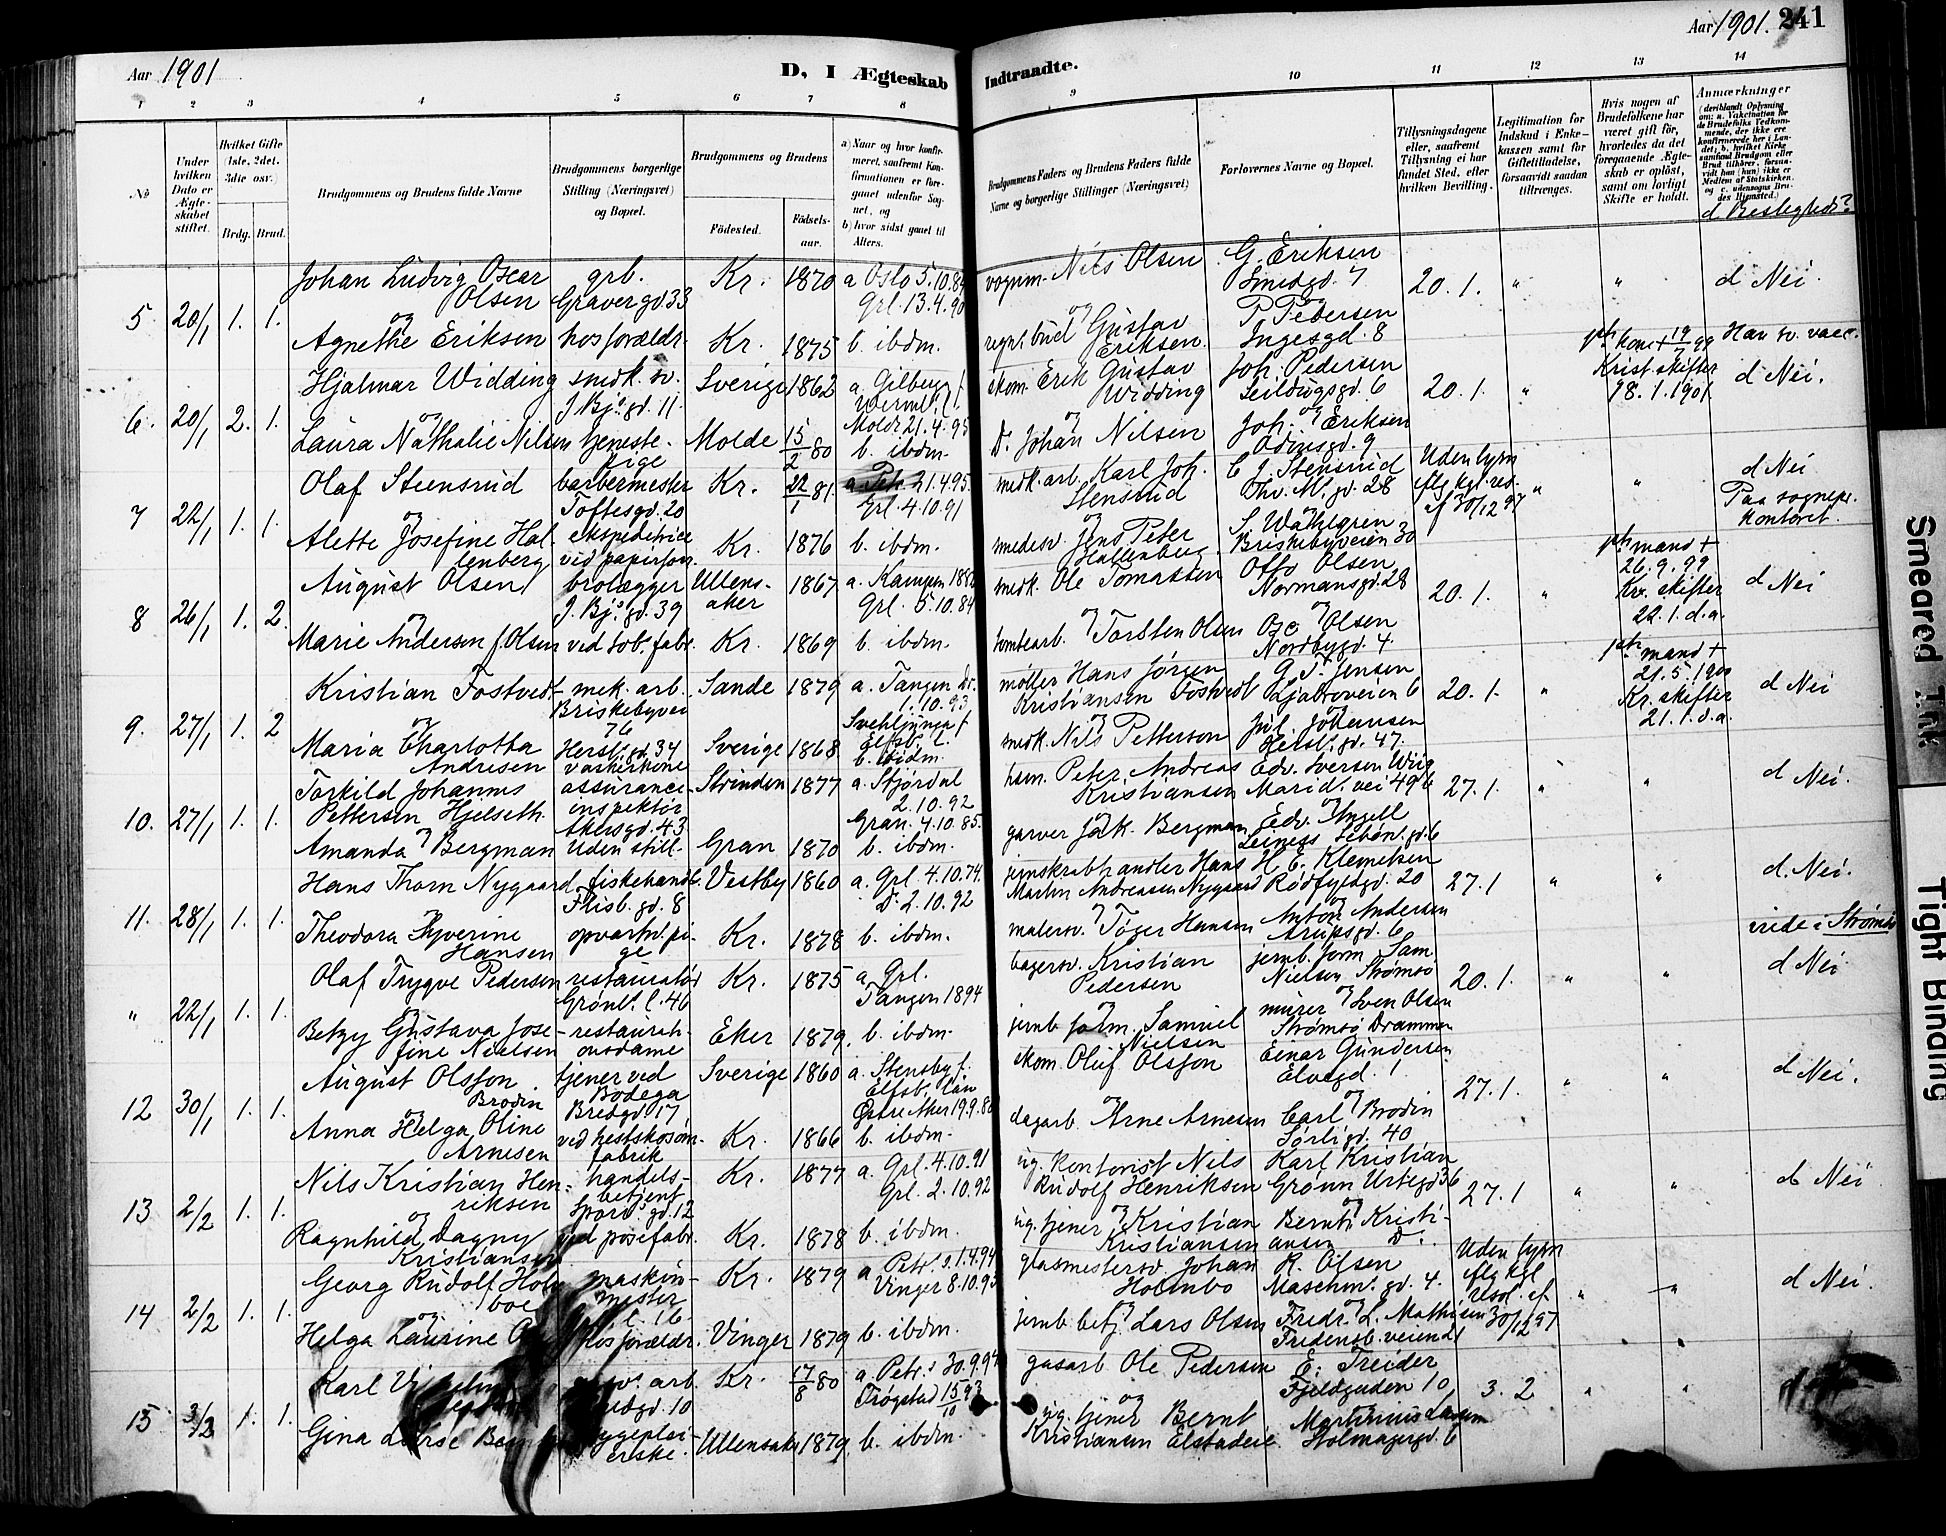 Aar 1901
D, I Ægteskab
Indtraadte.
Aar 1901. 241
1 2 3 4 5 6 7 8
9 10 11 12 13 14
No
Under hvilken Dato er Ægteskabet stiftet.
Hvilket Gifte (1ste, 2det, 3die osv.)
Brdg. Brud.
Brudgommens og Brudens fulde Navne
Brudgommens borgerlige Stilling (Næringsvei) og Bopæl.
Brudgommens og Brudens
Födested.
Födsels-aar.
a) Naar og hvor konfirmeret, saafremt Konfirmationen er foregaaet udenfor Sognet, og
b) hvor sidst gaaet til Alters.
Brudgommens Faders og Brudens Faders fulde Navne og borgerlige Stillinger (Næringsvei)
Forlovernes Navne og Bopæl.
Tillysningsdagene eller, saafremt Tillysning ei har fundet Sted, efter hvilken Bevilling.
Legitimation for Indskud i Enkekassen samt for Giftetilladelse, forsaavidt saadan tiltrænges.
Hvis nogen af Brudefolkene har været gift för, hvorledes da det foregaaende Ægteskab er oplöst, samt om lovligt Skifte er holdt.
Anmærkninger
d Beslegtede?
5 20/1 1. 1.
Johan Ludvig Oscar Olsen
grb. Gravergd. 33
Kr. 1870
a Oslo 5.10.84
Grl. 13.4.90
vognm. Nils Olsen
G. Eriksen
Smedgd. 7
20. 1. " "
d Nei
og
Agnethe Eriksen
hos forældr.
Kr. 1875 b. ibdm.
og
Gustav Eriksen
P. Pedersen
Ingesgd. 8
6. 20/1 2. 1.
Hjalmar Widding
snedk. sv.
J. Bj.s gd. 11.
Sverige 1862
skom. Erik Gustav Widding
Joh. Pedersen
20. 1. "
Krist. skifter
18. 1. 1901
d Nei.
og
Laura Nathalie Nilsen
tjenestepige
Molde 15/2 80
Molde 21.4.95
b. ibdm.
D. Johan Nilsen
Joh. Eriksen
Odinsgd. 9
7 22/1 1. 1.
Olaf Steensrud
barbermester
Toftesgd. 20
Kr. 22/1 81.
21.4.95.
medk. arb. Karl Joh. Stensrud
C. J. Stensrud
Thv. M. gd. 28
Uden lysn
flg kgl. res.
af 30/12 97
" "
d Nei
Paa sognepr. kontoret.
og
Alette Josefine Hallenberg
ekspeditrice
Kr. 1876
Grl. 4.10.91
b. ibdm.
Jens Peter Hallenberg
S. Wahlgren
Briskebyveien 30
8 26/1 1. 2.
August Olsen
brolægger
J. Bj.s gd. 39
Ullensaker 1867
a. Kampen 1882
snedk. Ole Tomassen
Otto Olsen
Normansgd. 28
20. 1. "
1ste mand +
26. 9. 99
Kr. skifter
22. 1. d. a.
d Nei
og
Marie Andersen f. Olsen
ved tob. fabr.
Kr. 1869
Grl. 5.10.84
b. ibdm.
tomtearb. Torsten Olsen
Nordbygd. 4
9. 27/1 1. 2
Kristian Fostvedt
mek. arb.
Briskebyvei 76
Sande 1879
a. Tangen Dr.
1. 10. 93
møller Hans Jörgen Kristiansen Fostvedt
G. T. Jensen
Ljabroveien 6
20. 1. "
1ste mand +
21. 5. 1900
Kr. skifter
21. 1. d. a.
d Nei
og
Maria Charlotta Andresen
Herslbgd. 34
vaskerkone
Sverige 1868
b. ibidm.
snedk. Nils Petterson
Jul. Johansen
Herslb. gd. 47.
10. 27/1 1. 1.
Torkild Johannes Pettersen Hjelseth
assurance-inspektör
Akersgd. 43
Strinden 1877
a. Stjördal
2. 10. 92
husm. Peter Andreas Kristiansen
Edv. Iversen Wiig
Marid. vei 49b
27. 1. " "
d Nei.
og
Amanda Bergman
Uden still.
Gran 1870
Gran. 4.10.85.
b. ibdm.
garver Jak. Bergman
Edv. Angell
11. 28/1 1. 1.
Hans Thorn Nygaard
fiskehandl.
Flisb. gd. 8
Vestby 1860
a. Grl. 4.10.74.
jernskrabhandler Hans Martin Andreassen Nygaard
H. C. Klemetsen
Rödfyldgd. 20
27. 1 " "
d. Nei.
Theodora Hyverine Hansen
opvartn. pige
Kr. 1878
D. 2. 10. 92
b. ibdm.
og
malersv. Töger Hansen
Anton Andersen
Arupsgd. 6
viede i Strömsö
" 22/1 1. 1.
Olaf Trygve Pedersen
restauratör
Grönl. l. 46
Kr. 1875
a. Grl.
bagersv. Kristian Pedersen
jernb. form. Sam. Nielsen Strömsö
20. 1. " "
d Nei
og
Betzy Gustava Josefine Nielsen
restaurationsdame
Eker 1879.
Tangen 1894
b. ibdm.
jernb. form. Samuel Nielsen
murer Sven Olsen
Strömsö Drammen
12 30/1 1. 1.
August Olsson Brodin
tjener ved Bodega
Bredgd. 17
Sverige 1860
a. Stensby f.
Elfsb. län
skom. Oluf Olsson
Einar Gundersen
Elvegd. 1
27. 1. " "
d Nei.
og
Anna Helga Oline Arnesen
ved hestskosöm-fabrik
Kr. 1866
Östre Aker 19.9.80
b. ibdm.
dagarb. Arne Arnesen
Carl Brodin
Sörligd. 40
13 2/2 1. 1.
Nils Kristian Henriksen
handels-betjent
Kr. 1877
a. Grl. 4.10.91
ug. kontorist Nils Rudolf Henriksen
Karl Kristian Grönn Urtegd 36
27. 1 " "
d Nei
og
Ragnhild Dagny Kristiansen
ved posefabr.
Kr. 1878
Grl. 2.10.92
b. ibdm.
ug. tjener Kristian Kristiansen
Bernt Kristiansen D.
14 2/2 1. 1.
Georg Rudolf Holmboe
maskinmester
Kr. 1879
a
glasmestersv. Johan Holmbo
R. Olsen
Maschm. gd. 4.
Uden lysn
flg kgl
resol. af
30/12 97
" "
d Nei.
og
Helga Laurine
hos forældr.
Vinger 1879
Vinger 8.10.93
b. ibdm.
jernb. betj. Lars Olsen
Fredr. L. Mathisen
Fredensb. veien
15 3/2 1. 1.
Karl
arb.
Kr. 17/8 80
a. Petr.s 30.9.94
gasarb. Ole Pedersen
E. Treider
Fjeldgaden 10
3. 2 " "
Gina
Ullensaker 1879.
Trögstad 15/10 93
b. ibdm.
og
ug. tjener Bernt Kristiansen Elstadeie
Martinius Larsen
Holmagergd. 6
Smeared Ink
Tight Binding